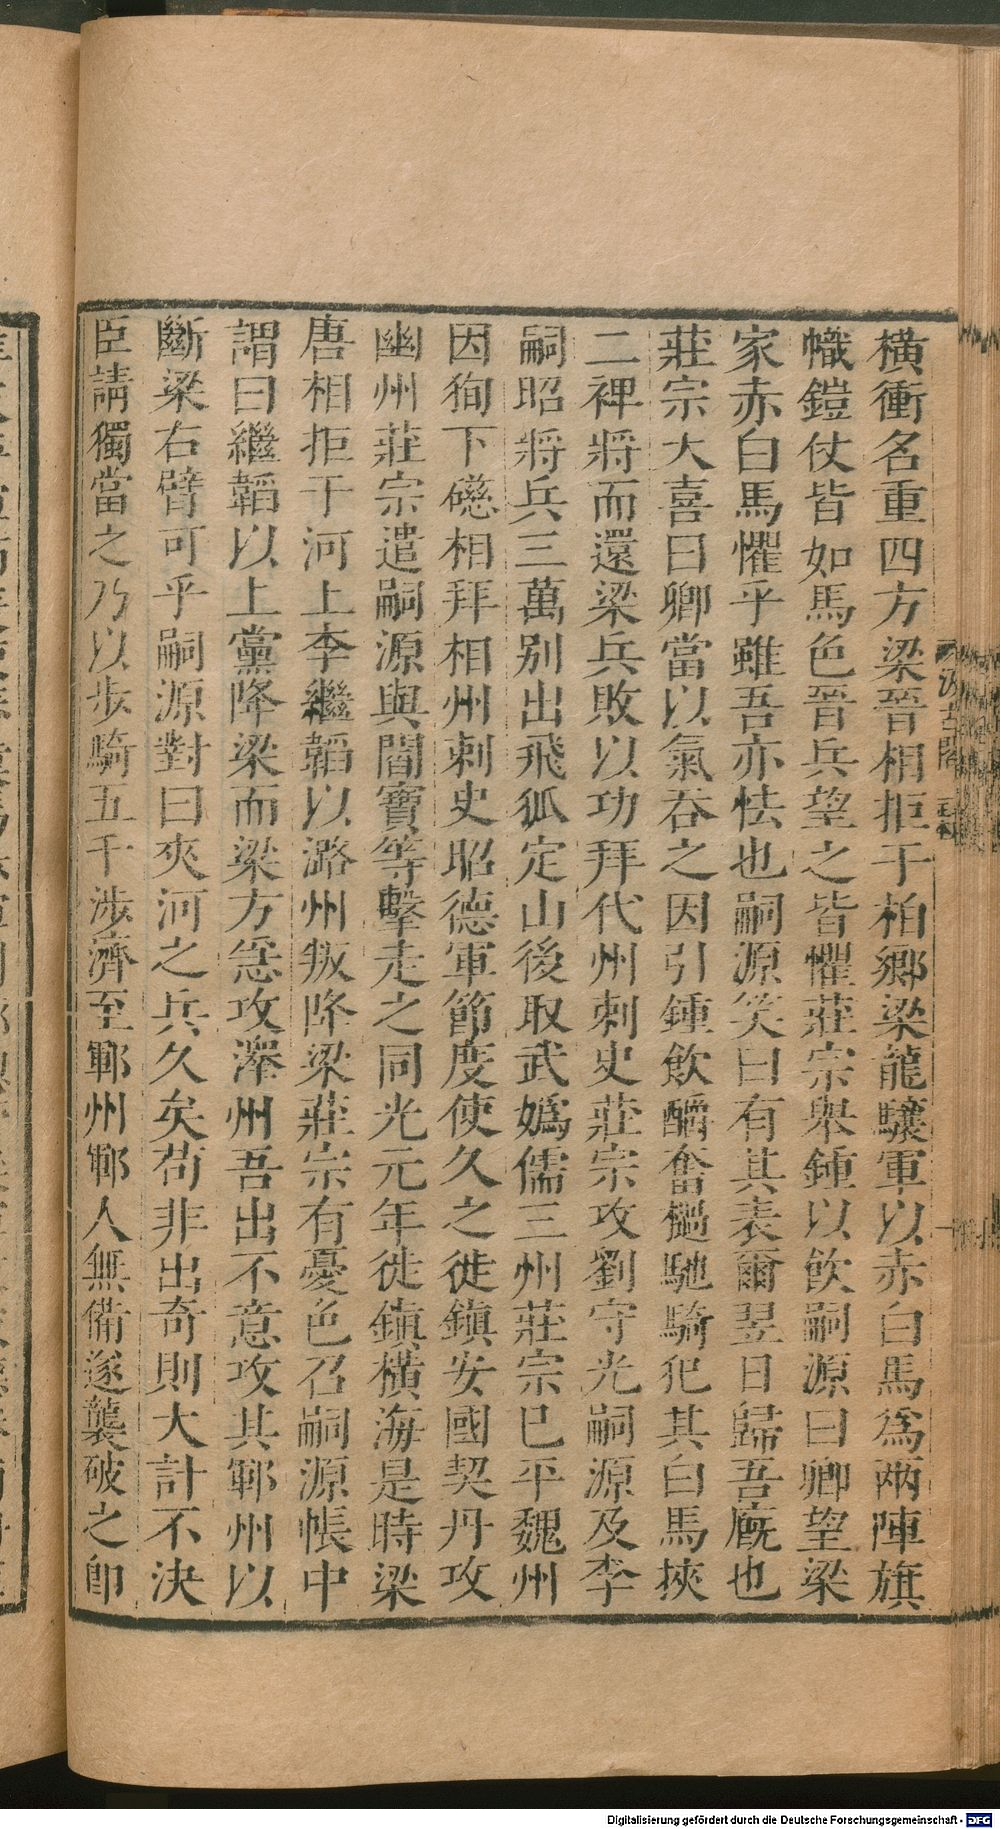 橫衝名重四方梁晉相拒于柏鄉梁龍驤軍以赤白馬為兩陣旗
幟鎧仗皆如馬色晉兵望之皆懼莊宗舉鍾以飲嗣源曰卿望梁
家赤白馬懼乎雖吾亦怯也嗣源笑曰有其表爾翌日歸吾廐也
莊宗大喜曰卿當以氣吞之因引鍾飲釂奮檛馳騎犯其白馬挾
二裨將而還梁兵敗以功拜代州刺史莊宗攻劉守光嗣源及李
嗣昭將兵三萬別出飛狐定山後取武媯儒三州莊宗已平魏州
因徇下磁相拜相州刺史昭德軍節度使久之徙鎮安國契丹攻
幽州莊宗遣嗣源與閻寶等擊走之同光元年徙鎮橫海是時梁
唐相拒于河上李繼韜以潞州叛降梁莊宗有憂色召嗣源帳中
謂曰繼韜以上黨降梁而梁方急攻澤州吾出不意攻其鄆州以
斷梁右臂可乎嗣源對曰夾河之兵久矣苟非出奇則大計不決
臣請獨當之乃以步騎五千涉濟至鄆州鄆人無備遂襲破之即
Digitalisierung gefördert durch die Deutsche Forschungsgemeinschaft - DFG